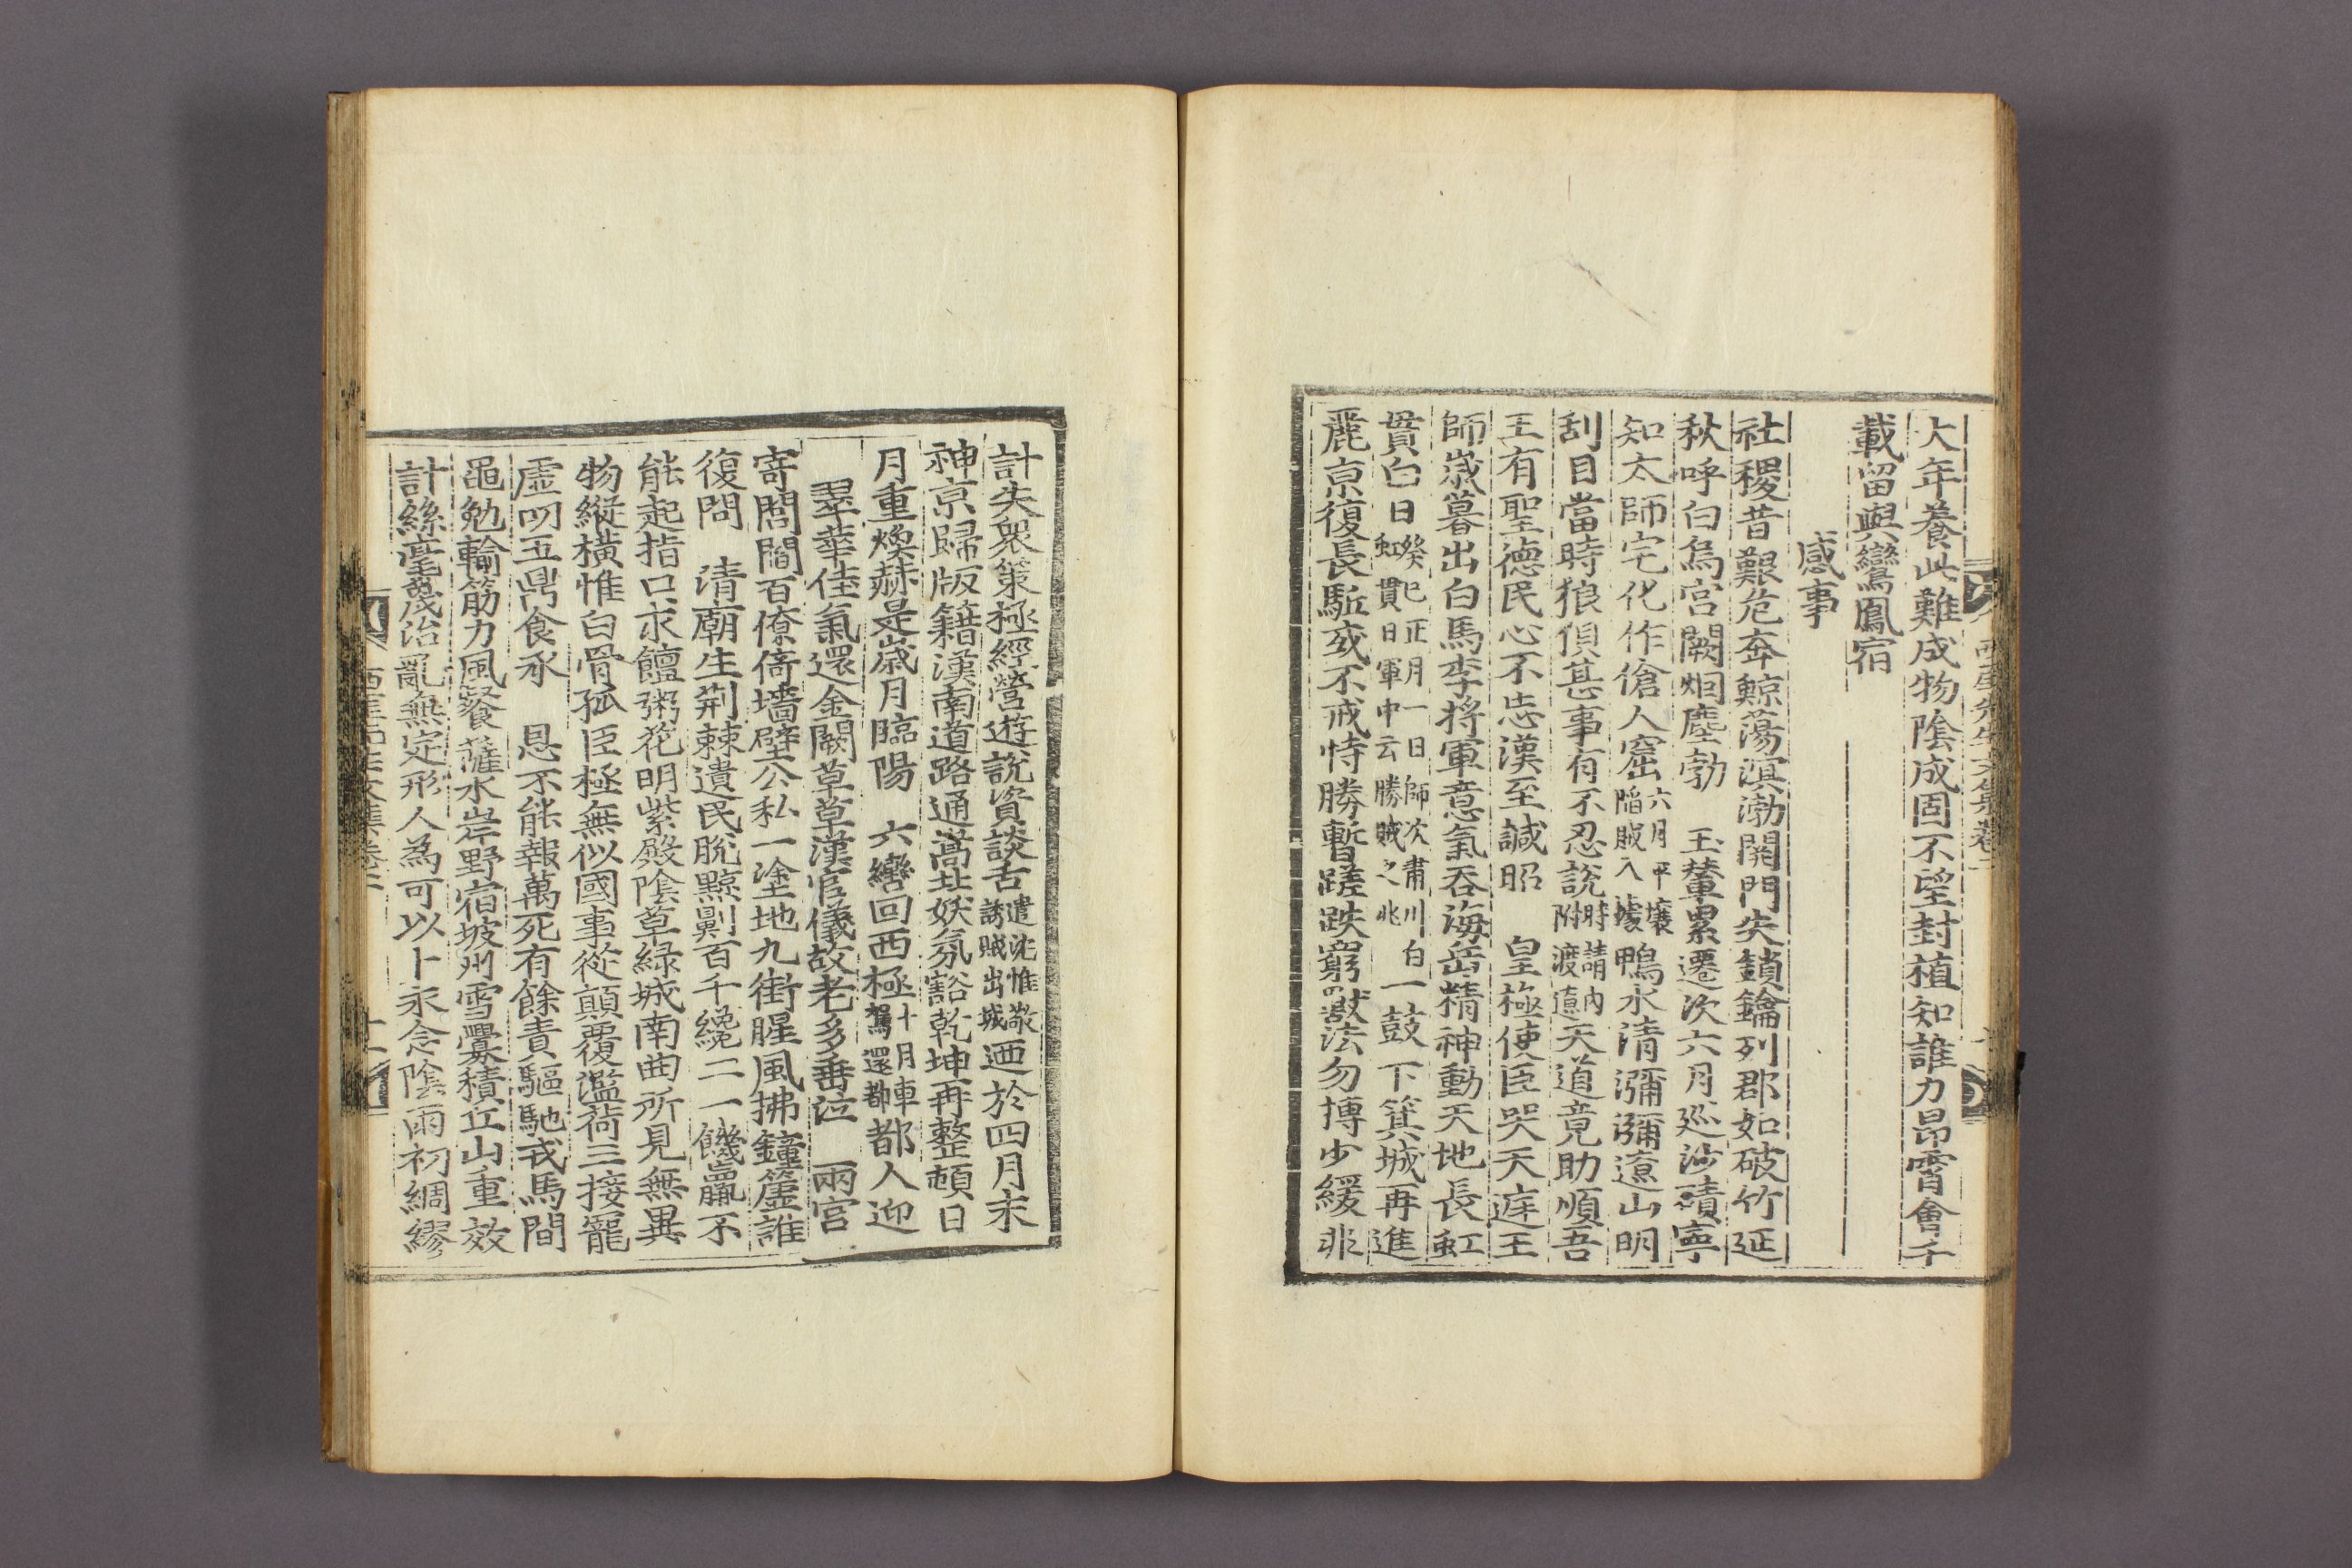 大年養此難成物陰成固不望封植知誰力昂霄會千
載留與鸞鳳宿
感事
社稷昔艱危奔鯨蕩溟渤關門失鎖鑰列郡如破竹延
秋呼白烏宮闕烟塵勃 玉輦累遷次六月廵沙磧寧
知太師宅化作傖人窟六月平壤陷賊入據鴨水清瀰瀰遼山明
刮目當時狼狽甚事有不忍說時請內附渡遼天道竟助順吾
王有聖德民心不忘漢至諴昭 皇極使臣哭天庭王
師歲暮出白馬李將軍意氣吞海岳精神動天地長虹
貫白日癸巳正月一日師次肅川白虹貫日軍中云勝賊之兆一鼓下箕城再進
麗京復長驅或不戒恃勝暫蹉跌窮獸法勿搏少緩非
計失衆策極經營遊說資談舌遣沈惟敬誘賊出城迺於四月末
神京歸版籍漢南道路通嵩北妖氛豁乾坤再整頓日
月重煥赫是歲月臨陽 六轡回西極十月車駕還都都人迎
翠華佳氣還金闕草草漢官儀故老多垂泣 兩宮
寄閭閻百僚倚墻壁公私一塗地九街腥風拂鐘簴誰
復問 清廟生荊棘遺民脫黥劓百千纔二一饑羸不
能起指口求饘粥花明紫殿陰草綠城南曲所見無異
物縱橫惟白骨孤臣極無似國事從顛覆濫荷三接寵
虛叨五鼎食承 恩不能報萬死有餘責驅馳戎馬間
黽勉輸筋力風餐薩水岸野宿坡州雪釁積丘山重效
計絲毫蔑治亂無定形人為可以卜永念陰雨初綢繆
西厓先生文集卷二
西厓先生文集卷二